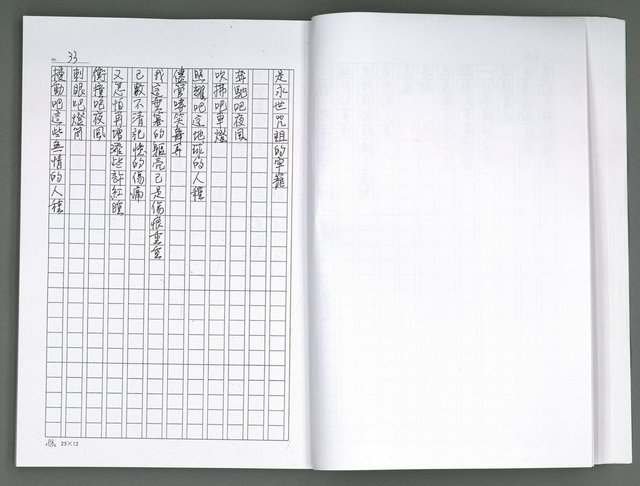 33
是永世咒詛的牢籠
奔馳吧夜風
吹拂吧車燈
照耀吧這地球的人種
儘管嘻笑
我這重塞的軀壳已是傷痕重重
已數不清記憶的傷痛
又恐怕再增添些許紅腫
衝撞吧夜風
刺眼吧燈筒
擾動吧這些無情的人種
25×12